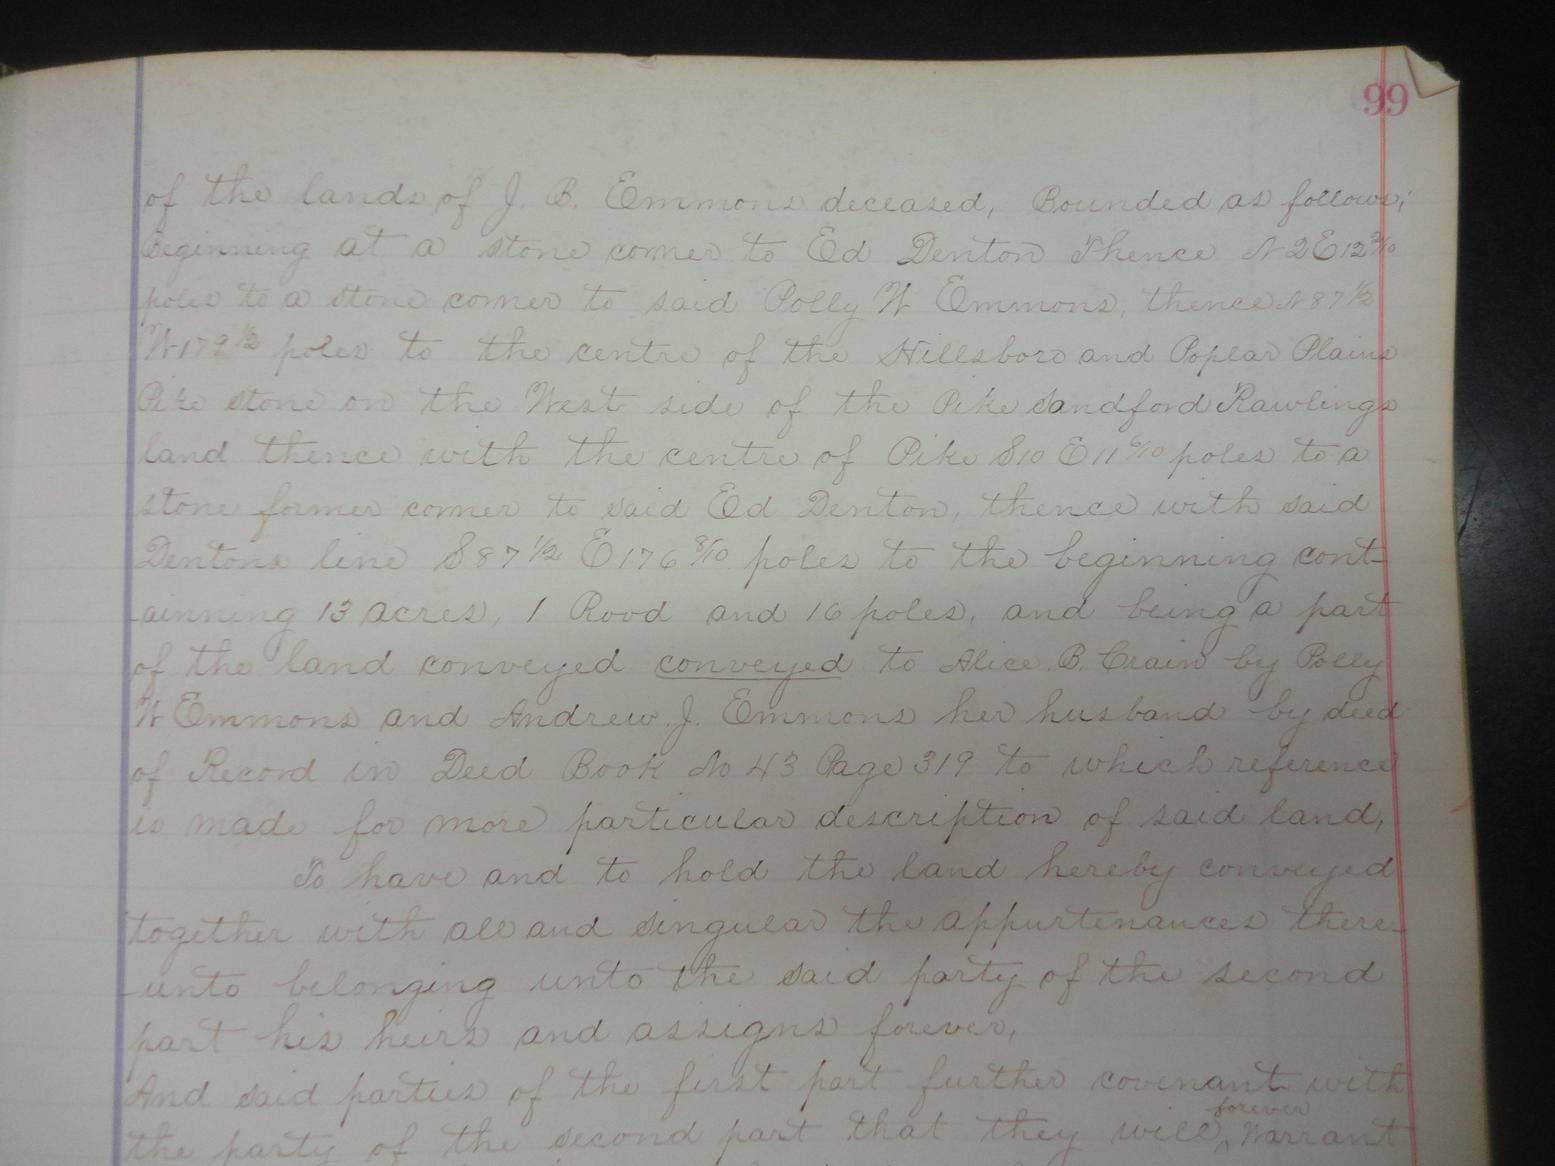 99
of the lands of J. B. Emmons deceased, Bounded as follows;
Beginning at a stone corner to Ed Denton Thence N 2 E 12
poles to a stone corner to said Polly W Emmons, thence N 87 1/2
W 179 1/2 poles to the centre of the Hillsboro and Poplar Plains
Pike stone on the West side of the Pike Sandford Rawlings
land thence with the centre of Pike S 10 E 11 6/10 poles to a
stone former corner to said Ed Denton, thence with said
Dentons line S 87 1/2 E 176 8/10 poles to the beginning cont-
ainning 13 acres, 1 Rood and 16 poles, and being a part
of the land conveyed conveyed to Alice B. Crain by Polly
W Emmons and Andrew J. Emmons her husband by deed
of Record in Deed Book No 43 Page 319 to which reference
is made for more particular description of said land,
To have and to hold the land hereby conveyed
together with all and singular the appurtenances there-
unto belonging unto the said party of the second
part his heirs and assigns forever,
And said parties of the first part further covenant with
forever
the party of the second part that they will, Warrant